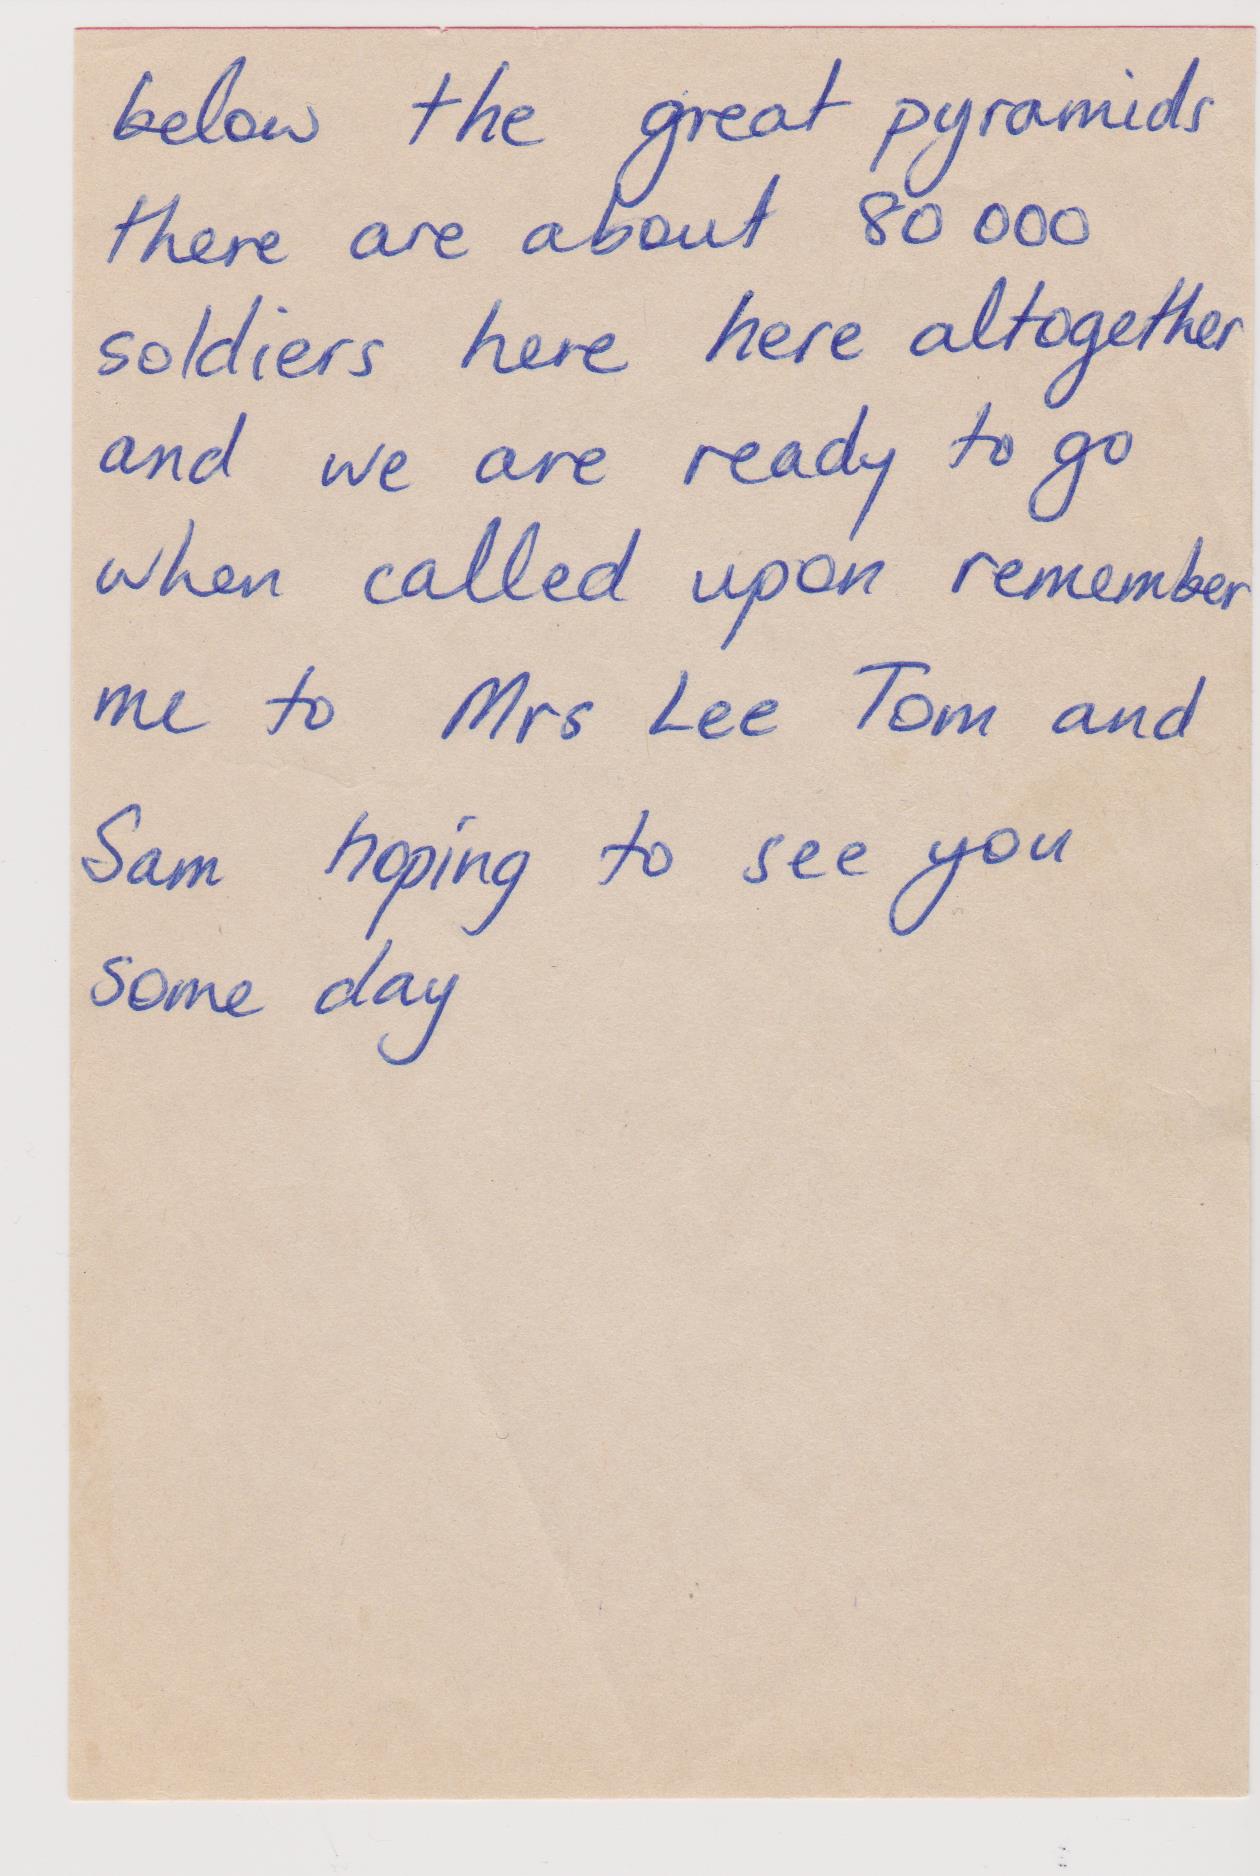 below the great pyramids
there are about 80 000
soldiers here here altogether
and we are ready to go
when called upon remember
me to Mrs Lee Tom and
Sam hoping to see you
some day